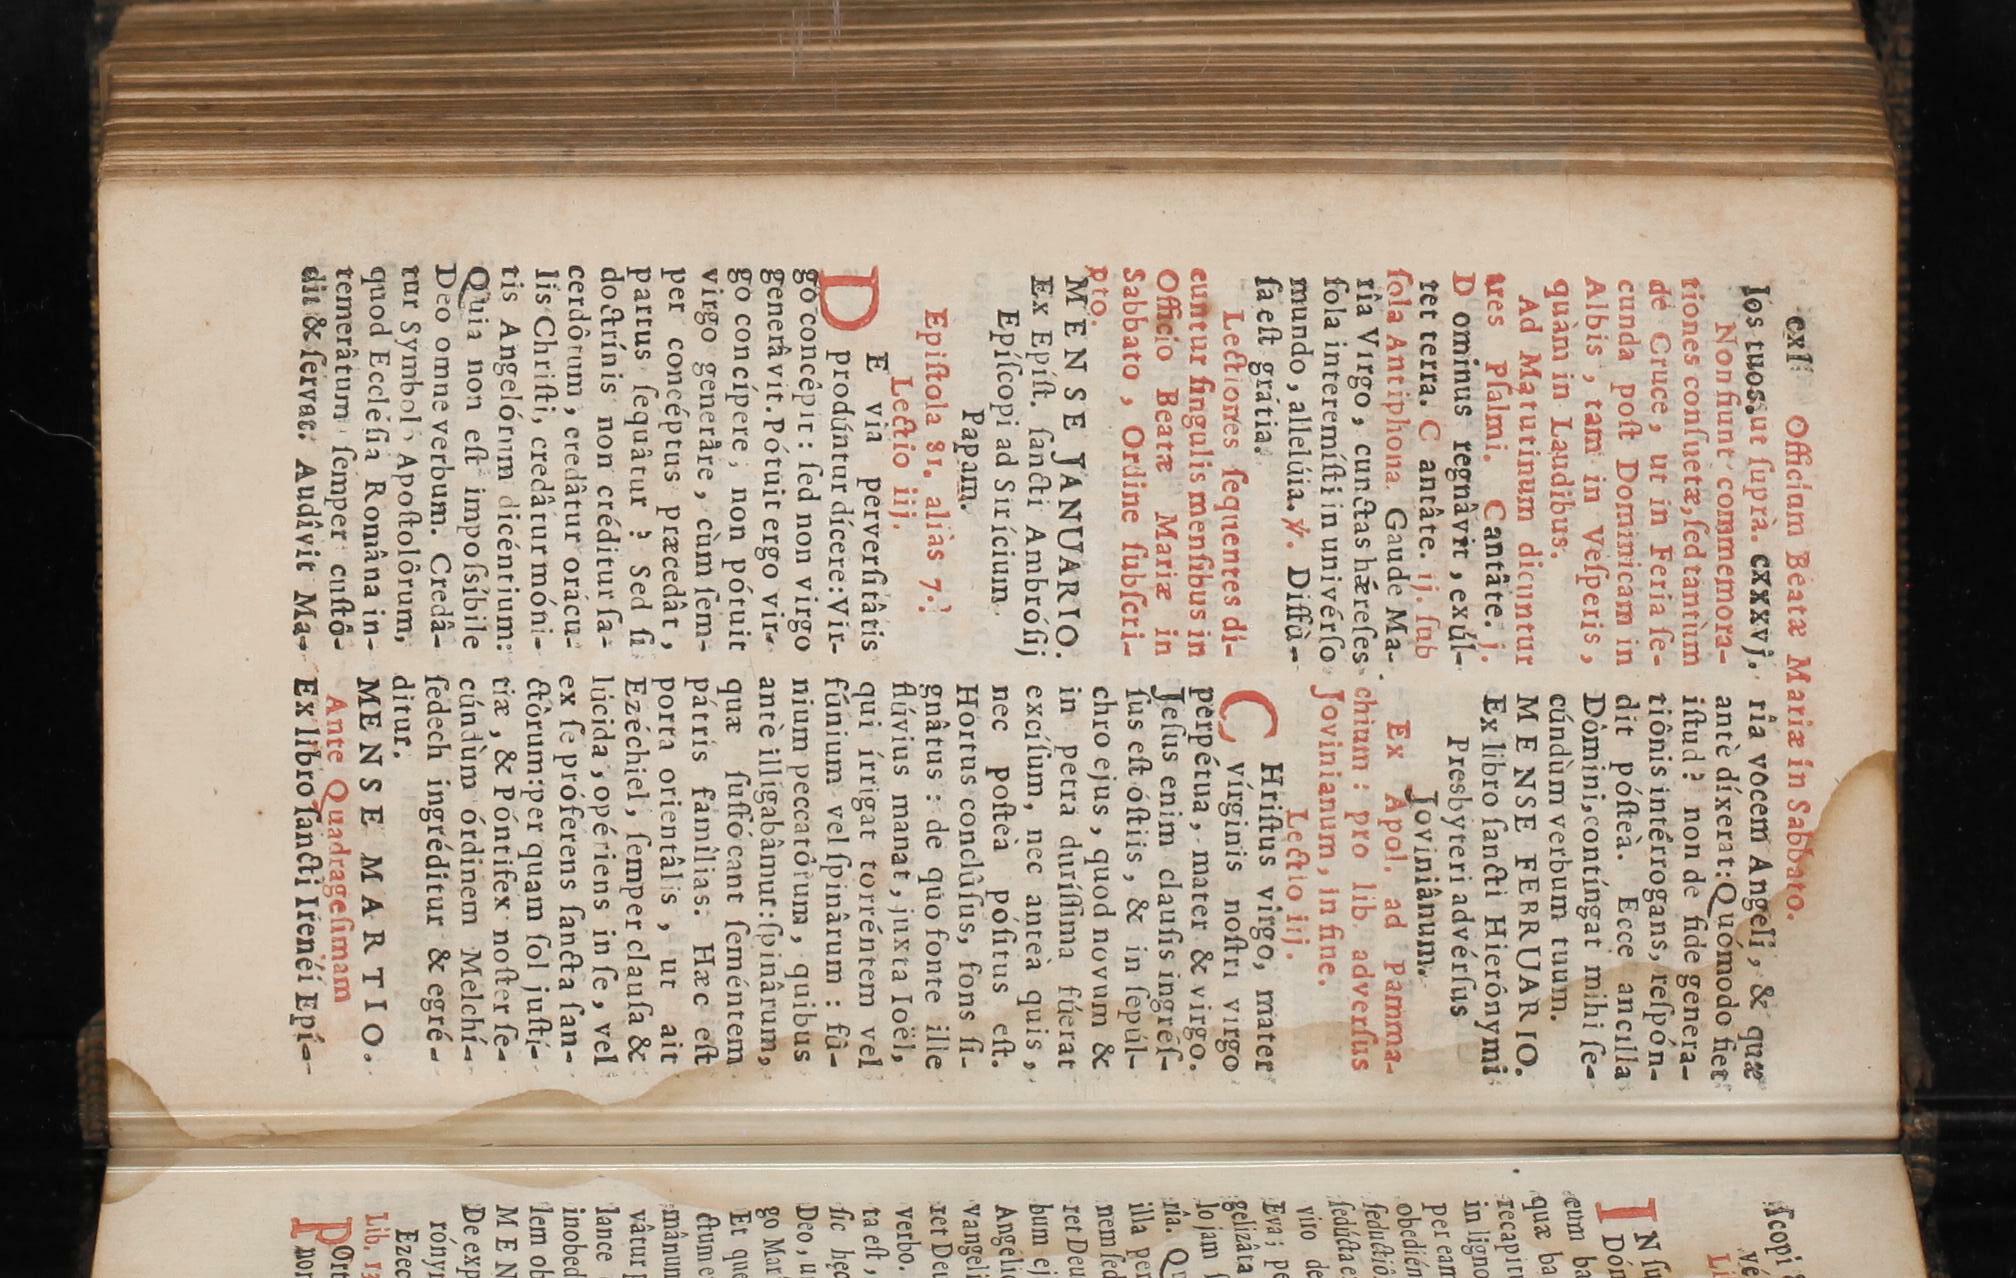 cxl. Officium Beatæ Mariæ in Sabbato.
los tuos. ut ſuprà. cxxxvj.
Non fiunt commemora-
tiones conſuetæ, ſed tantùm
de Cruce, ut in Feria ſe-
cunda poſt Dominicam in
Albis, tam in Veſperis,
quàm in Laudibus.
Ad Matutinum dicuntur
tres Pſalmi. Cantâte. j.
Dominus regnâvit, exúl-
tet terra. Cantâte. ij. ſub
ſola Antiphona. Gaude Ma-
rîa Virgo, cunctas hǽreſes
ſola interemíſti in univérſo
mundo, allelúia. ℣. Diffú-
ſa eſt grátia.
Lectiones ſequentes di-
cuntur ſingulis menſibus in
Officio Beatæ Mariæ in
Sabbato, Ordine ſubſcri-
pto.
MENSE JANUARIO.
Ex Epíſt. ſancti Ambróſij
Epíſcopi ad Sirícium
Papam.
Epiſtola 81. aliàs 7.
Lectio iij.
DE via perverſitâtis
produ̍ntur dícere: Vir-
go concêpit: ſed non virgo
generâvit. Pótuit ergo vir-
go concípere, non pótuit
virgo generâre, cùm ſem-
per concéptus præcedât,
partus ſequâtur? Sed ſi
doctrínis non créditur ſa-
cerdôtum, credâtur orácu-
lis Chriſti, credâtur móni-
tis Angelórum dicéntium:
Quia non eſt impoſsíbile
Deo omne verbum. Credâ-
tur Symbolo Apoſtolôrum,
quod Eccléſia Româna in-
temerâtum ſemper cuſtô-
dit & ſervat. Audîvit Ma-
rîa vocem Angeli, & quæ
antè díxerat: Quómodo fiet
iſtud? non de fide genera-
tiônis intérrogans, reſpón-
dit póſteà. Ecce ancilla
Dómini, contíngat mihi ſe-
cúndùm verbum tuum.
MENSE FEBRUARIO.
Ex libro ſancti Hierônymi
Presbyteri advérſus
Joviniânum.
Ex Apol. ad Pamma-
chium: pro lib. adverſus
Jovinianum, in fine.
Lectio iij.
CHriſtus virgo, mater
vírginis noſtri virgo
perpétua, mater & virgo.
Jeſus enim clauſis ingréſ-
ſus eſt óſtiis, & in ſepúl-
chro ejus, quod novum &
in petra duríſſima fúerat
excíſum, nec anteà quis,
nec poſteà póſitus eſt.
Hortus conclûſus, fons ſi-
gnâtus: de quo fonte ille
flúvius manat, juxta Ioël,
qui írrigat torréntem vel
fúnium vel ſpinârum: fú-
nium peccatôrum, quibus
antè illigabâmur: ſpinârum,
quæ ſuffócant ſeméntem
pátris famílias. Hæc eſt
porta orientâlis, ut ait
Ezéchiel, ſemper clauſa &
lúcida, opériens in ſe, vel
ex ſe próferens ſancta ſan-
ctôrum: per quam ſol juſtí-
tiæ, & Póntifex noſter ſe-
cúndùm órdinem Melchí-
ſedech ingréditur & egré-
ditur.
MENSE MARTIO.
Ante Quadrageſimam
Ex libro ſancti Irénéi Epí-
ſcopi
vé
Li
IN ſu
Dón
cum ba
quæ ba
recapitu
in ligno
per eam
obedién
ſeductiô
ſedúcta e
viro de
Eva; pe
gelizâta
lo jam ſ
rîa. Qu
illa per
nem ſed
ret Deu
bum ej
Angélic
vangeli
ret Deu
verbo.
ta eſt,
ſic hęc
Deo, u
go Mar
Et que
ctum e
mânum
vâtur p
lance
inobed
lem ob
MEN
De exp
rónym
Ezec
Lib. 13
POrt
non